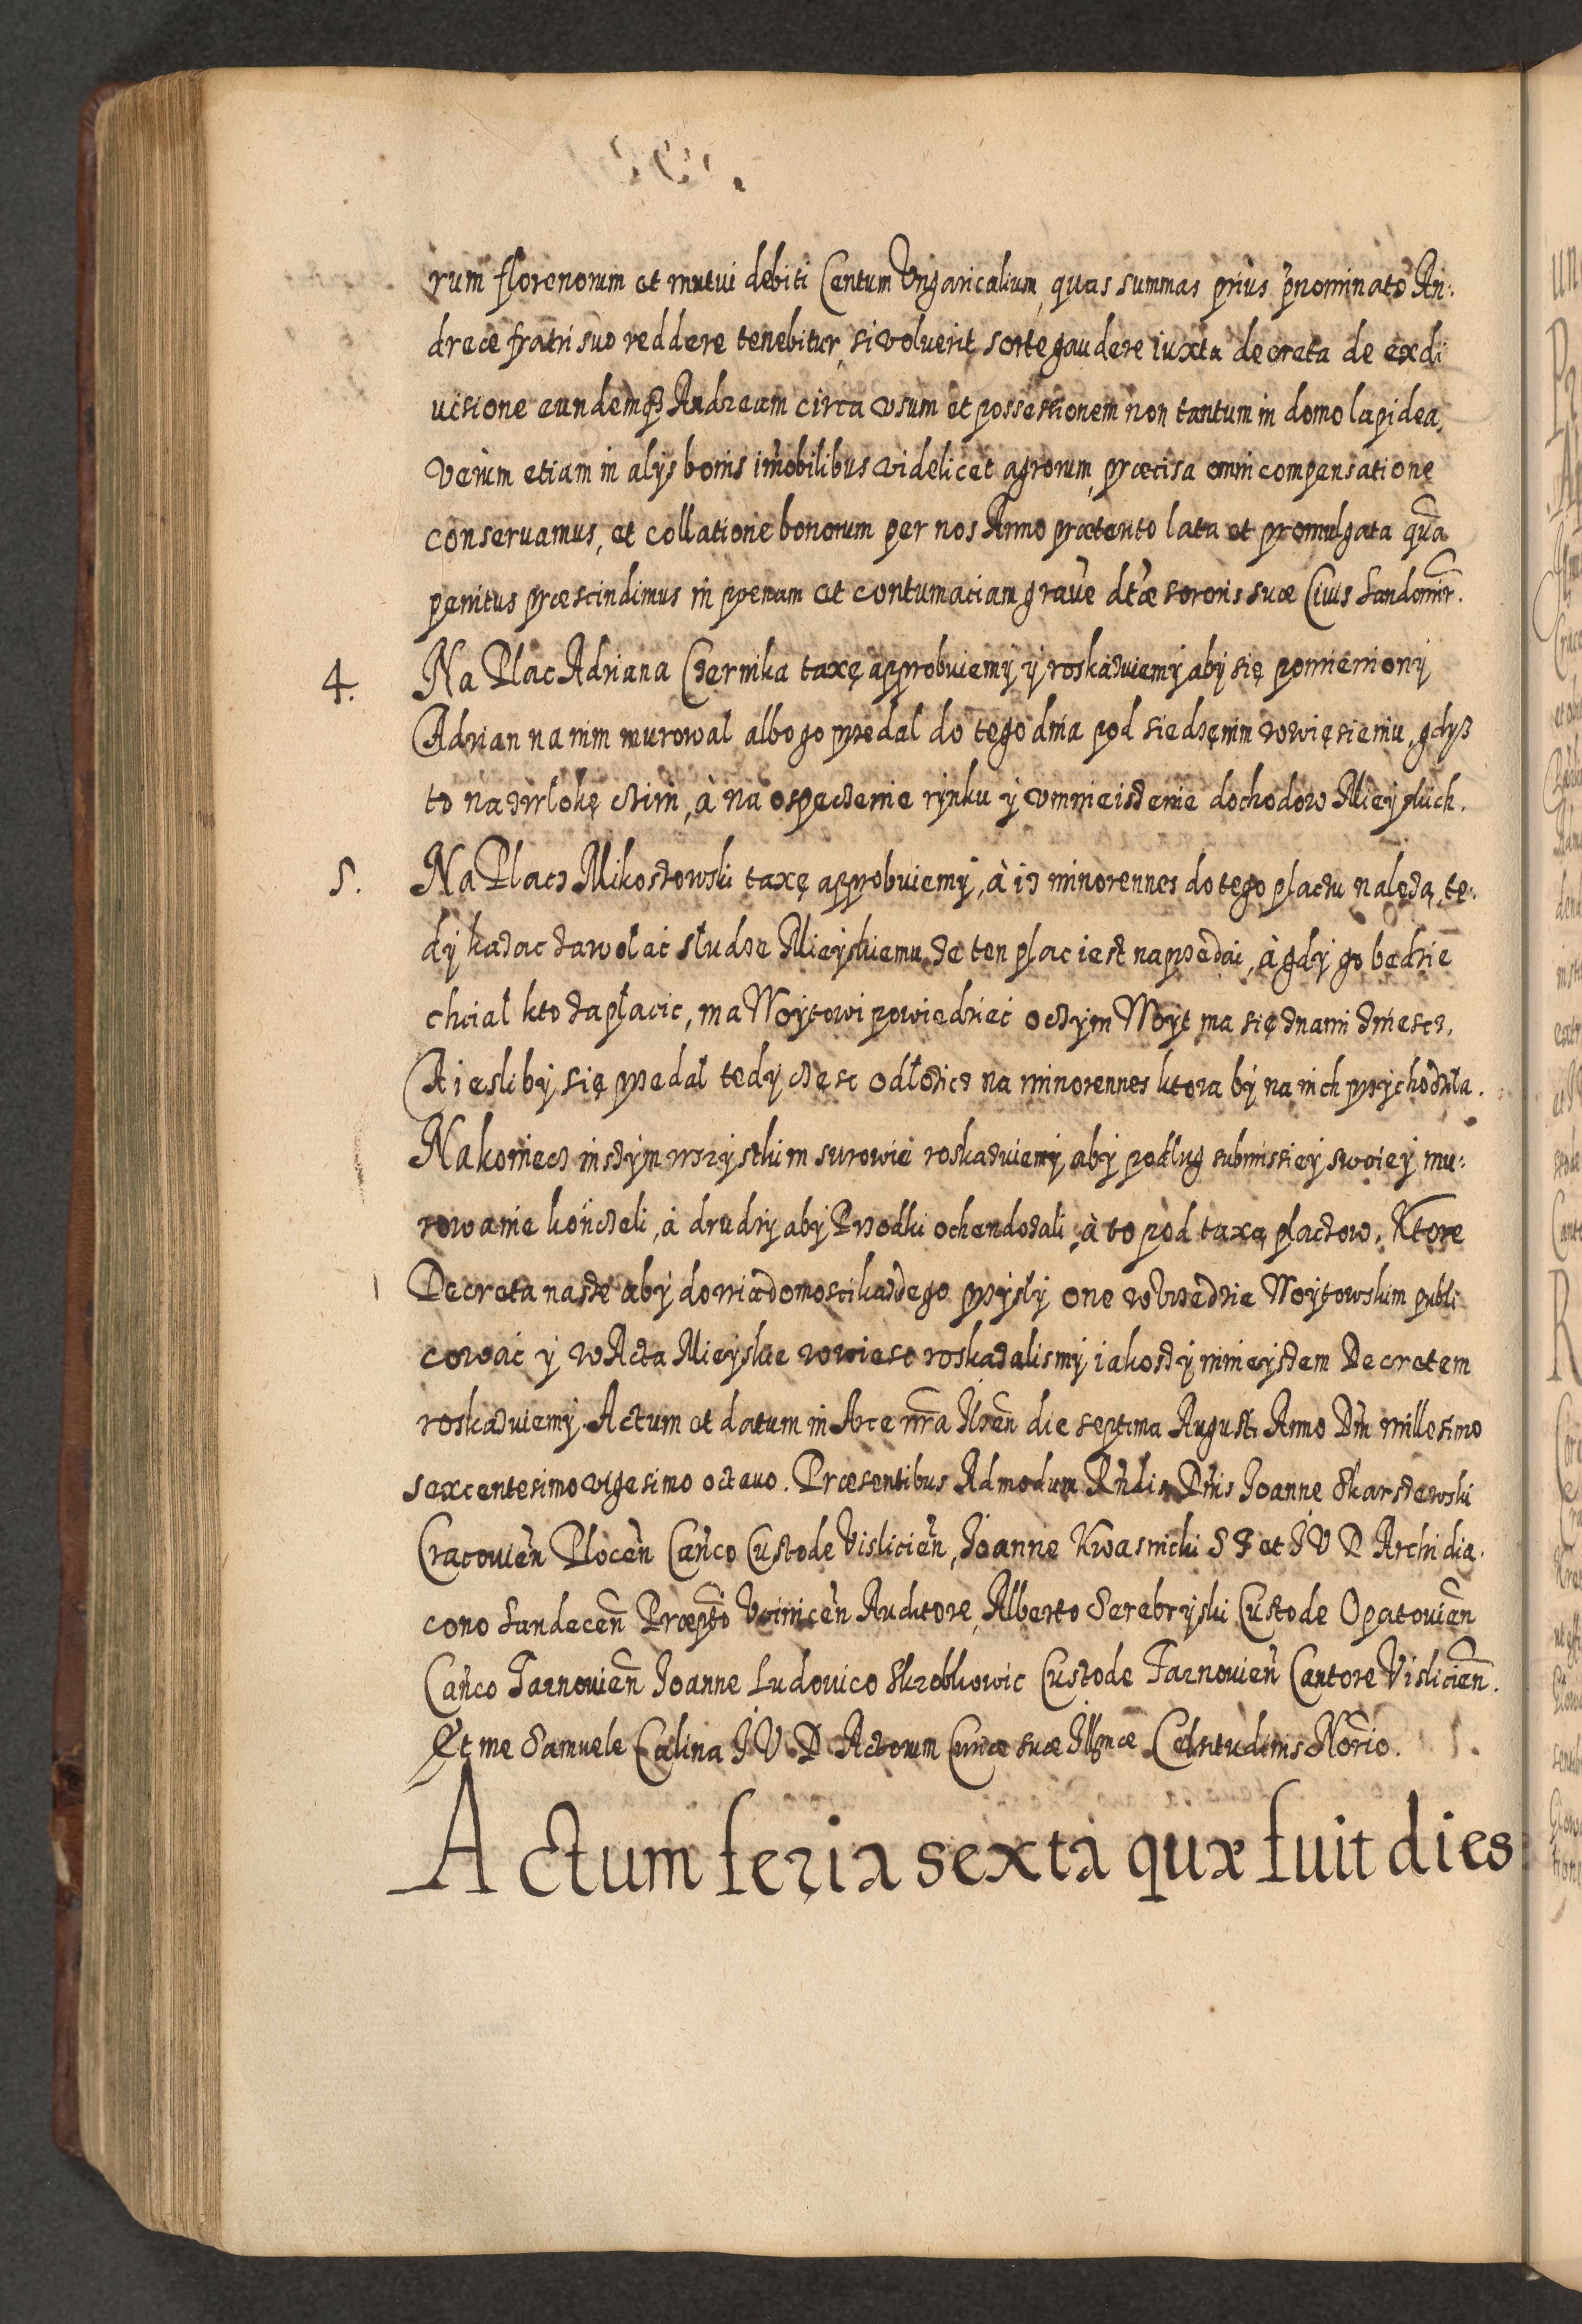 rum florenorum et mutui debiti Centum Ungaricalium, quas summas prius p̄nominato An:
dreae fratri suo reddere tenebitur, si voluerit sorte gaudere iuxta decreta de exdi
uisione eundemqꝫ Andream circa usum et possessionem non tantum in domo lapidea,
Verum etiam in alijs bonis im̄obilibus videlicet agrorum, praecisa omni compensatione
conseruamus, et collatione bonorum per nos Anno praetento lata et promulgata
penitus praescindimus in poenam et contumaciam graue dtae sororis suae Ciuis Sandomir.
4. Na Plac Adriana Czernika taxę approbuiemy y roskazuiemy aby się pomieniony
Adrian na nim murował albo go przedal do tego dnia pod siedzęnim wwięzieniu, gdyß
to na zwlokę czini, à na oszpeczenie rynku y vmnieiszenie dochodow Mieyskich.
5. Na Placz Mikoszowski taxę approbuiemy, à iz minorennes do tego placzu nalezą, te:
dy kazac zawołać słudze Mieyskiemu, ze ten plac iest naprzedai, à gdy go bedzie
chciał kto zapłacic, ma Woytowi powiedzieć o czym Woyt ma się znami zniescz,
A iesliby się przedał tedy częsc odłozicz na minorennes ktora by na nich przychodziła.
Nakoniecz inszym wszystkim surowie roskazuiemy aby podlug submissiey swoiey mu:
rowanie kończeli, à drudzy aby Przodki ochendozali, à to pod taxą placzow. Ktore
Decreta nasze aby do wiadomosci kazdego przyszły one w Vrzedzie Woytowskim publi
cować y w Acta Mieyskie wwiesc roskazalismy iakosz y ninieyszem Decretem
roskazuiemy. Actum et datum in Arce nr̄a Ilzen̄ die septima Augusti Anno Dni millesimo
sexcentesimo vigesimo octauo. Praesentibus Admodum Rn̄dis Dn̄is Joanne Skarszewski
Cracouien̄ Plocen̄ Can̄co Custode Vislicien̄, Joanne Kwasnicki S T et J V D Archidia:
cono Sandecen̄ Praepto Voinicen̄ Auditore, Alberto Serebryski Custode Opatouien̄
Can̄co Tarnouien̄ Joanne Ludouico Skrobkowic Custode Tarnouien̄ Cantore Vislicien̄.
Et me Samuele Calina J V D Actorum Curiae suae Illmae Celsitudinis Nōrio.
Actum feria sexta quae fuit dies